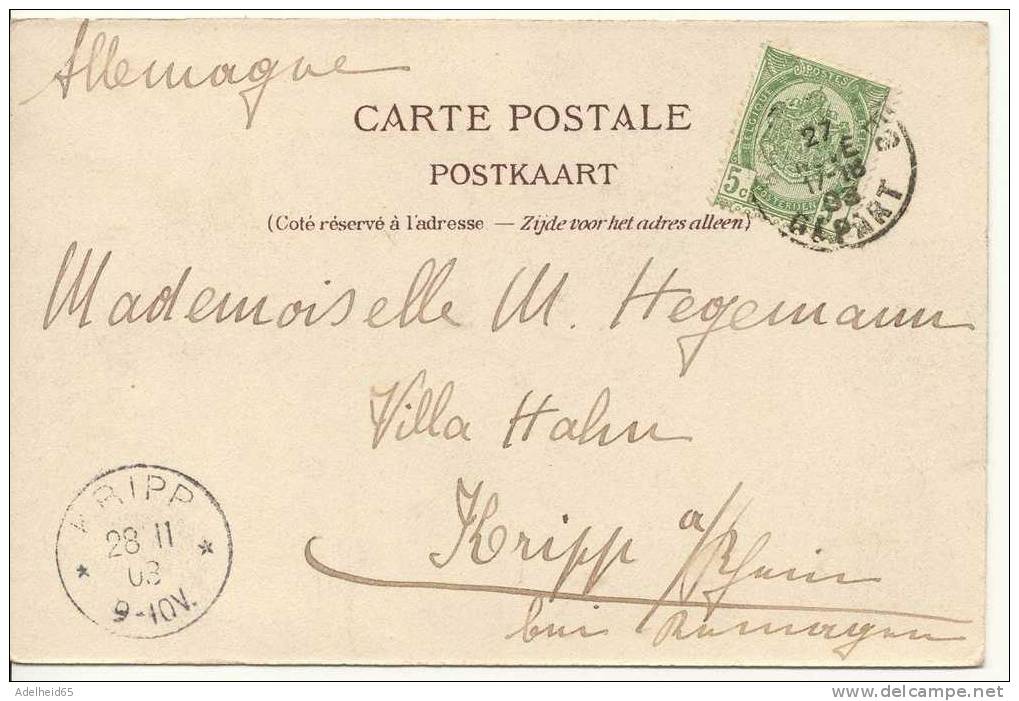 Allemagne
CARTE POSTALE
POSTKAART
(Coté réservé à l'adresse — Zijde voor het adres alleen)
POSTES
BELGIQUE
5 c
27
17-18
03
DEPART
Mademoiselle M. Hegemann
Villa Hahn
Kripp a/Rhein
bei Remagen
KRIPP
28 11
03
9-10V.
Adelheid65
www.delcampe.net